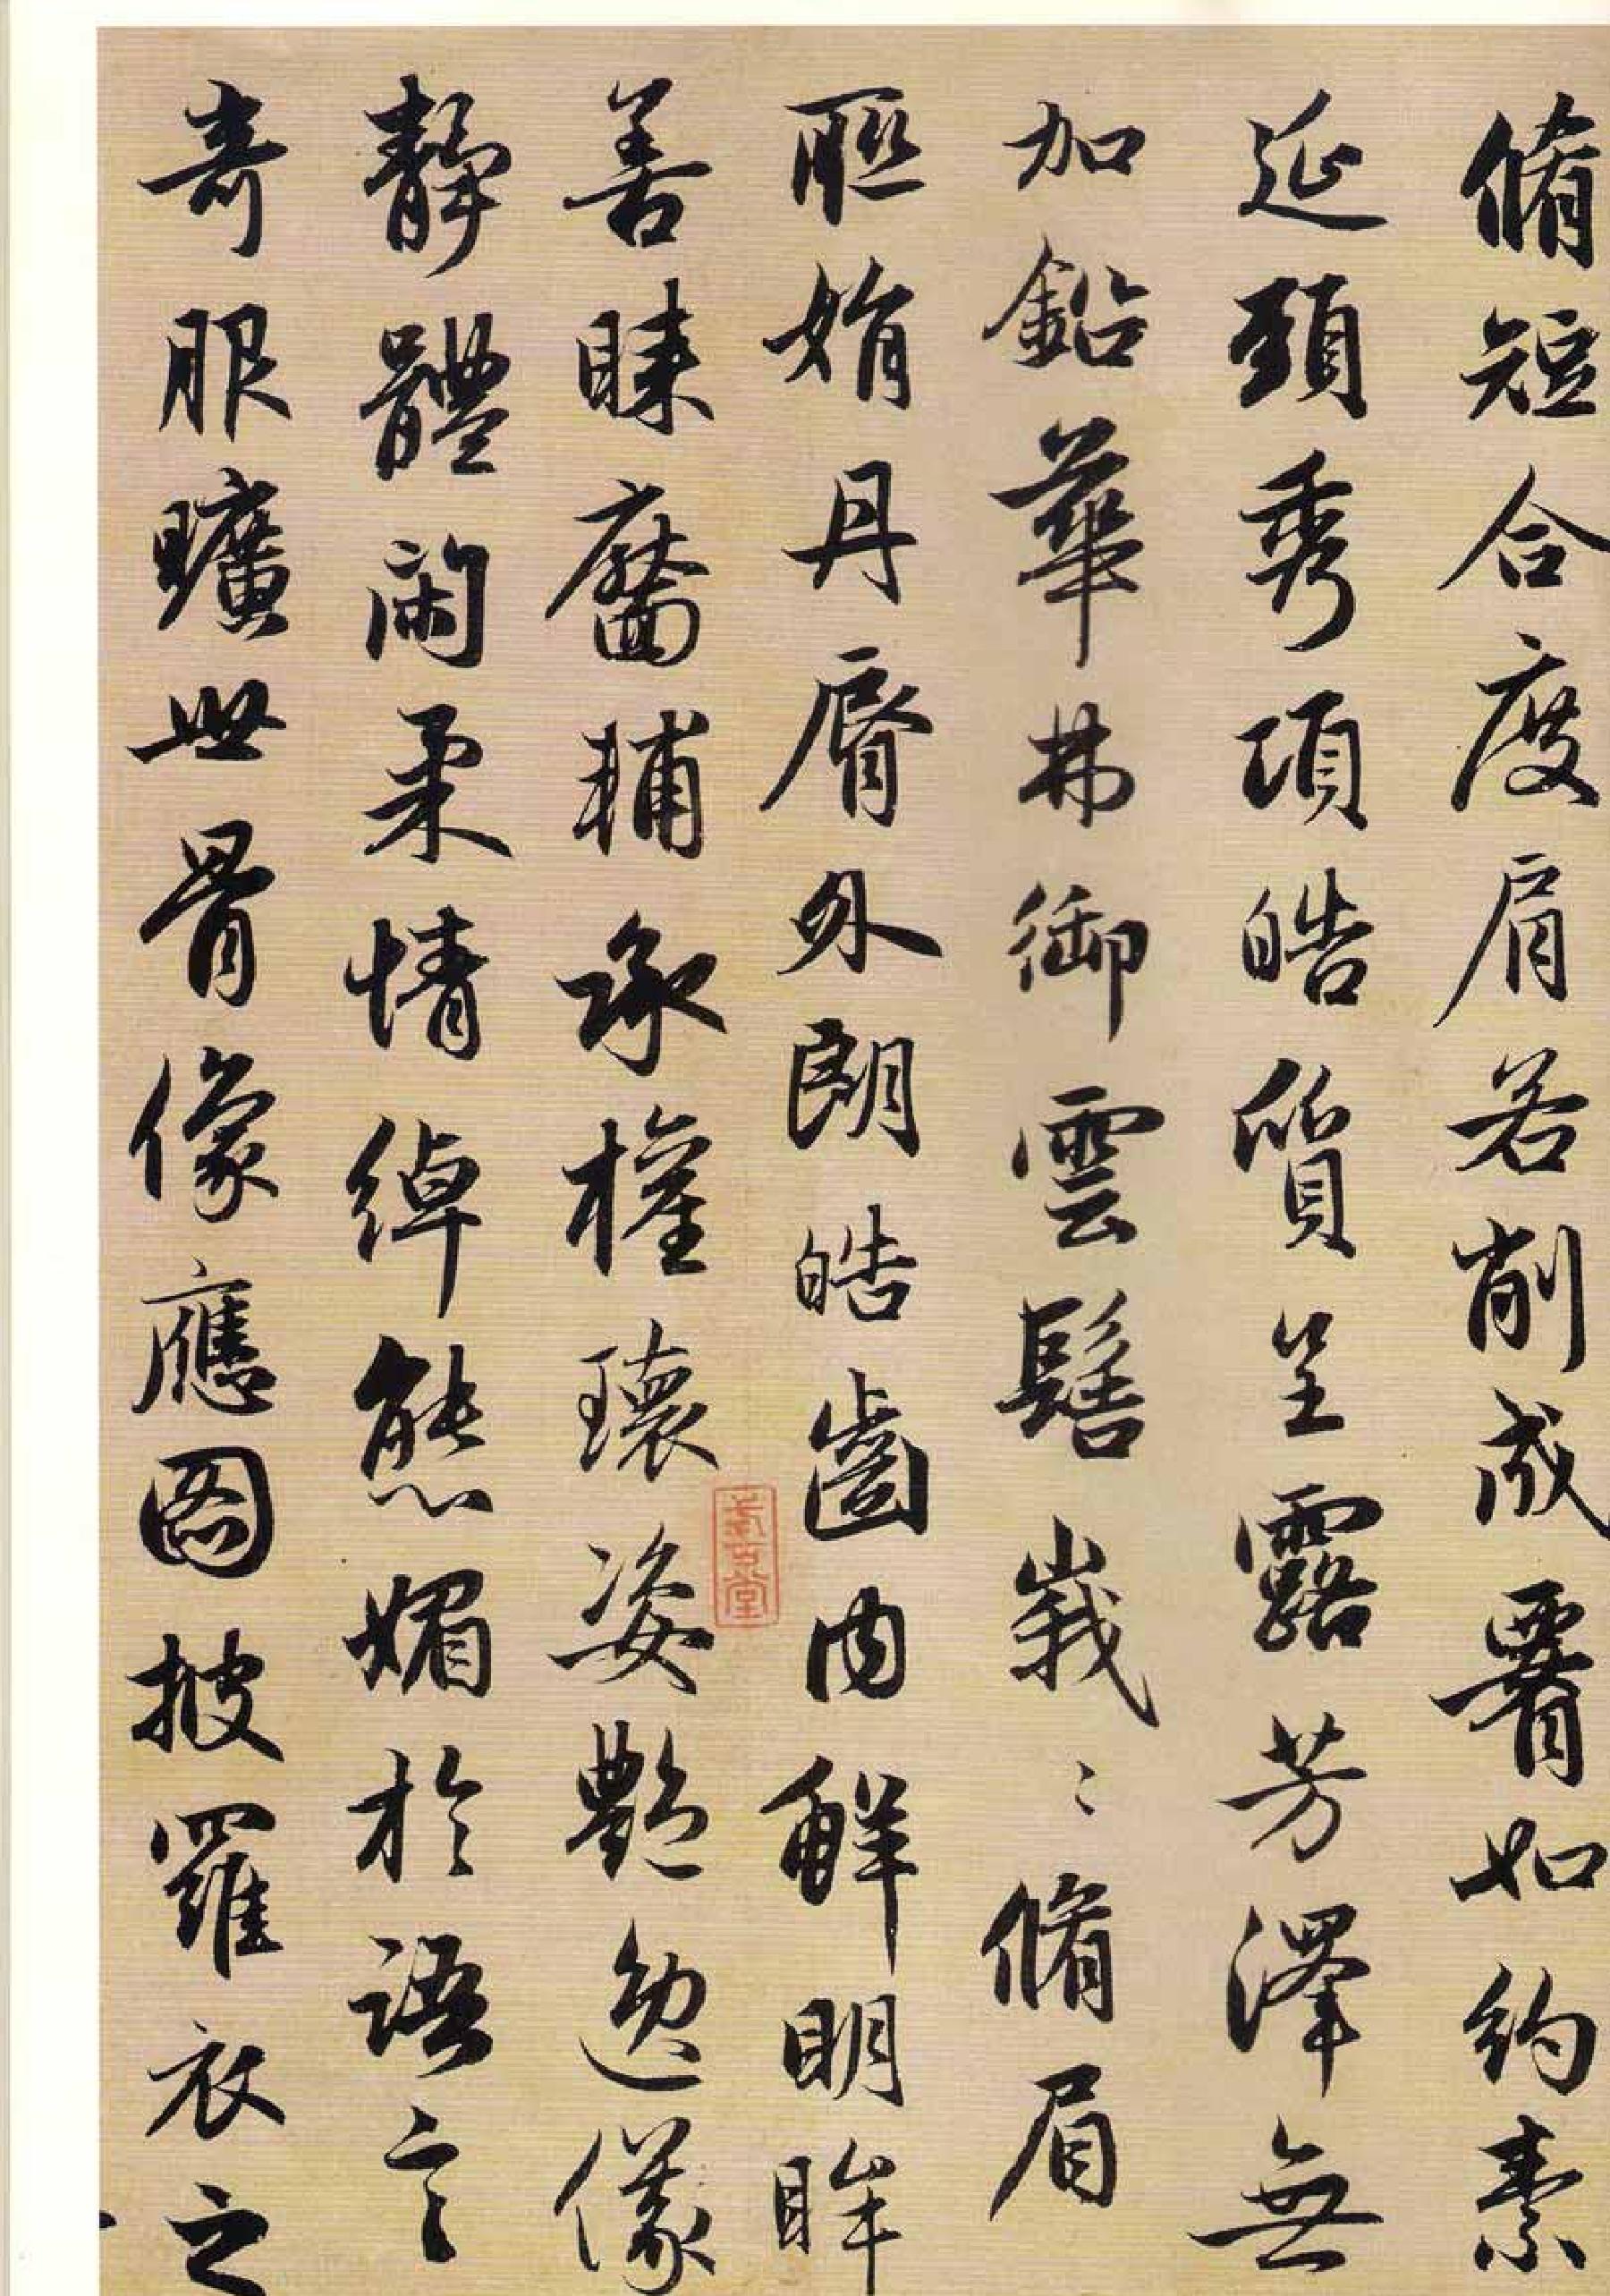 脩短合度肩若削成署如約素
延頸秀項皓質呈露芳澤無
加鉛華弗御雲髻峩〻脩眉
聮娟丹脣外朗皓齒内鮮明眸
善睐靨輔承權瓌姿艷逸儀
靜體閑柔情綽態媚於語言
奇服曠世骨像應圖披羅衣之